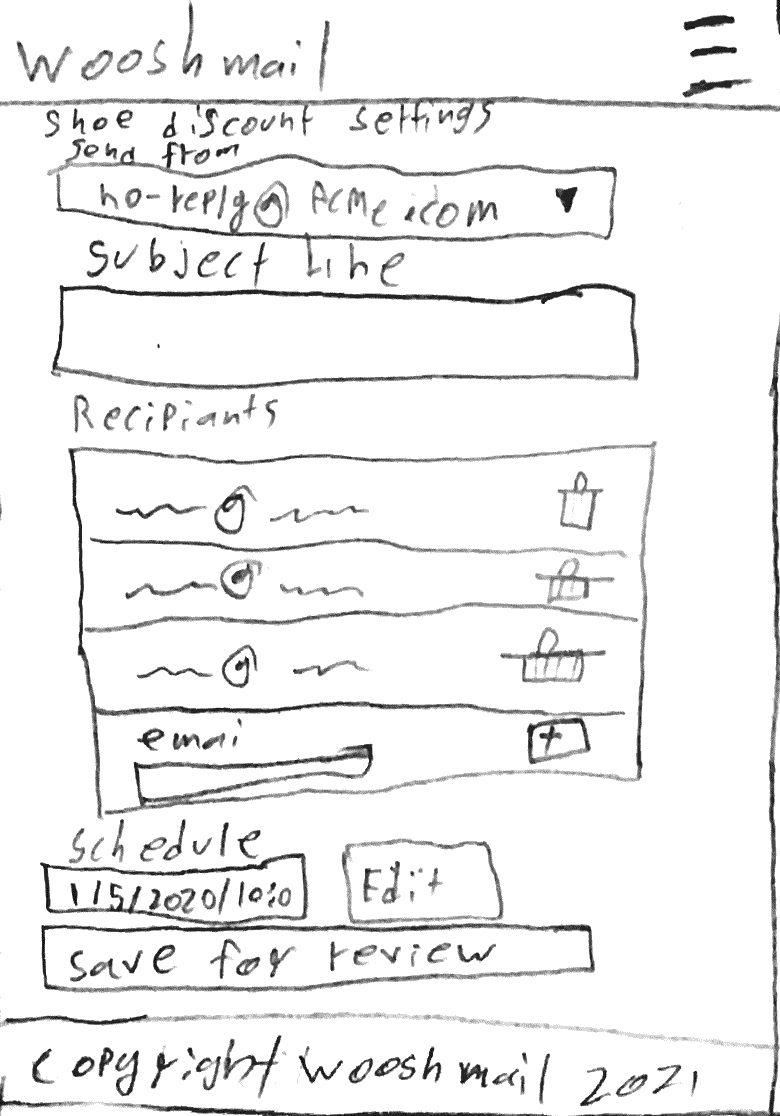 wooshmail
shoe discount settings
send from
no-reply@Acme.com
subject line
Recipiants
@
@
@
emai
+
schedule
1/5/2020/10:0
Edit
save for review
copyright wooshmail 2021